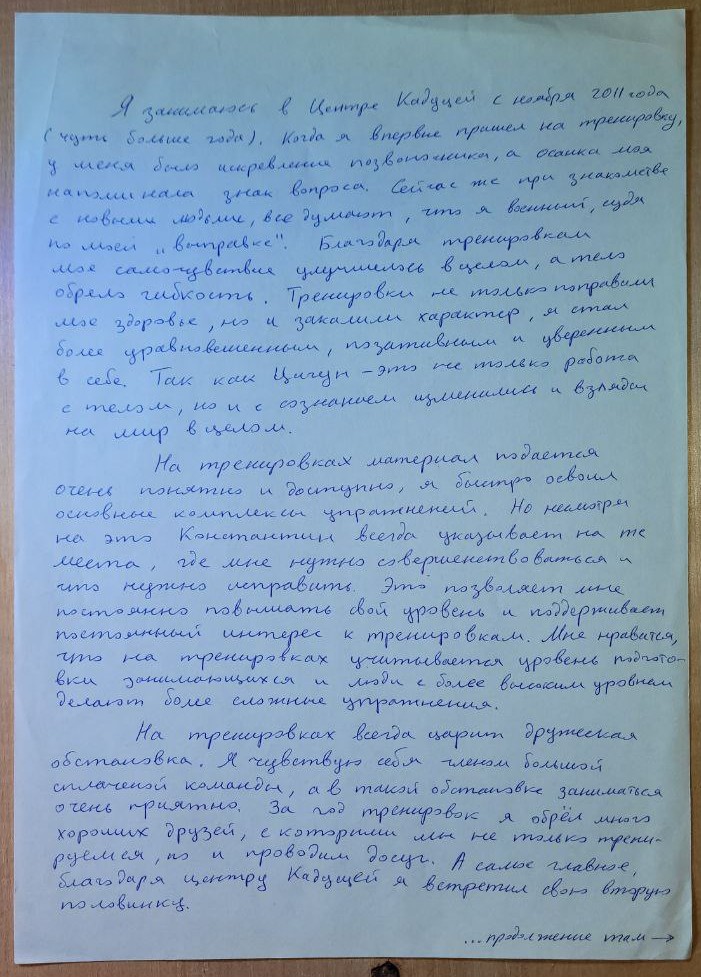 Я занимаюсь в Центре Кадуцей с ноября 2011 года
(чуть больше года). Когда я впервые пришел на тренировку,
у меня было искревление позвоночника, а осанка моя
напоминала знак вопроса. Сейчас же при знакомстве
с новыми людьми, все думают, что я военный, судя
по моей „выправке". Благодаря тренировкам
мое самочувствие улучшилось в целом, а тело
обрело гибкость. Тренировки не только поправили
мое здоровье, но и закалили характер, я стал
более уравновешенным, позативным и уверенным
в себе. Так как Цигун – это не только работа
с телом, но и с сознанием изменились и взгляды
на мир в целом.
На тренировках материал подается
очень понятно и доступно, я быстро освоил
основные комплексы упражнений. Но несмотря
на это Константин всегда указывает на те
места, где мне нужно совершенствоваться и
что нужно исправить. Это позволяет мне
постоянно повышать свой уровень и поддерживает
постоянный интерес к тренировкам. Мне нравится,
что на тренировках учитывается уровень подгото-
вки занимающихся и люди с более высоким уровнем
делают более сложные упражнения.
На тренировках всегда царит дружеская
обстановка. Я чувствую себя членом большой
сплаченой команды, а в такой обстановке заниматься
очень приятно. За год тренировок я обрёл много
хороших друзей, с которыми мы не только трени-
руемся, но и проводим досуг. А самое главное,
благодаря центру Кадуцей я встретил свою вторую
половинку.
...продолжение там →